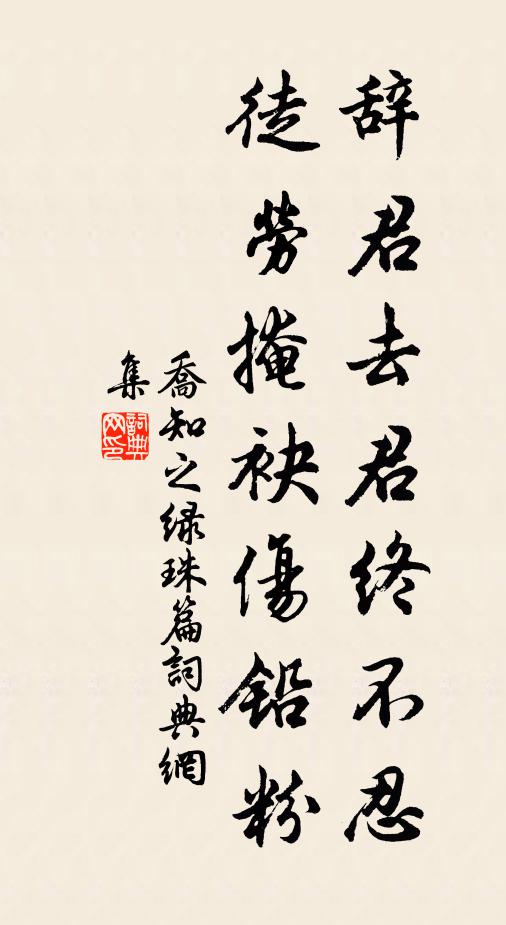 辞君去君终不忍
徒劳掩袂傷铅粉
喬知之绿珠篇詞典網
集
詞典网印